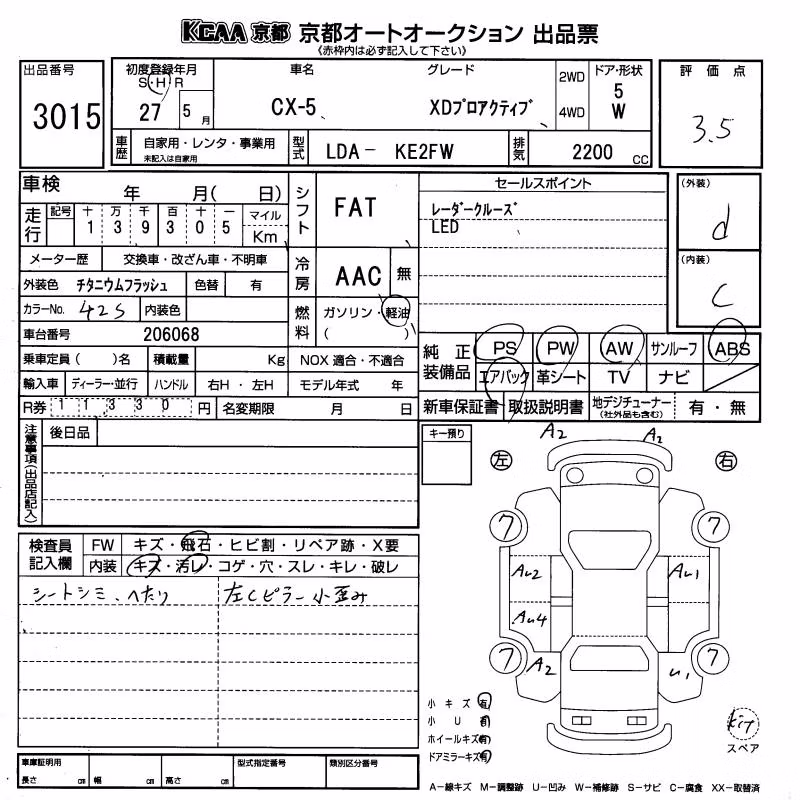 KCAA 京都 京都オートオークション 出品票
《赤枠内は必ず記入して下さい》
出品番号
3015
初度登録年月
S・H・R
27 5 月
車名
CX-5
グレード
XDプロアクティブ
2WD
4WD
ドア・形状
5
W
評価点
3.5
車歴
自家用・レンタ・事業用
未記入は自家用
型式
LDA- KE2FW
排気
2200 CC
車検 年 月( 日)
走行
記号 十 万 千 百 十 一 マイル
1 3 9 3 0 5 Km
シフト
FAT
セールスポイント
レーダークルーズ
LED
(外装)
d
(内装)
C
メーター歴 交換車・改ざん車・不明車
外装色 チタニウムフラッシュ 色替 有
冷房
AAC 無
カラーNo. 42S 内装色
燃料
ガソリン・軽油
( )
車台番号 206068
乗車定員( )名 積載量 Kg NOX適合・不適合
輸入車 ディーラー・並行 ハンドル 右H・左H モデル年式 年
R券 11330 円 名変期限 月 日
純正装備品
PS PW AW サンルーフ ABS
エアバック 革シート TV ナビ
新車保証書 取扱説明書 地デジチューナー(社外品も含む) 有・無
注意事項(出品店記入)
後日品
キー預り
A2 A2
左 右
7 7
AU2 AU1
AU4
7 7
A2 U1
検査員記入欄
FW キズ・飛石・ヒビ割・リペア跡・X要
内装 キズ・汚レ・コゲ・穴・スレ・キレ・破レ
シートシミ、へたり
左Cピラー小歪み
小キズ 有
小U 有
ホイールキズ 有
ドアミラーキズ 有
kit
スペア
車庫証明用
長さ cm 幅 cm 高さ cm
型式指定番号
類別区分番号
A-線キズ M-調整跡 U-凹み W-補修跡 S-サビ C-腐食 XX-取替済